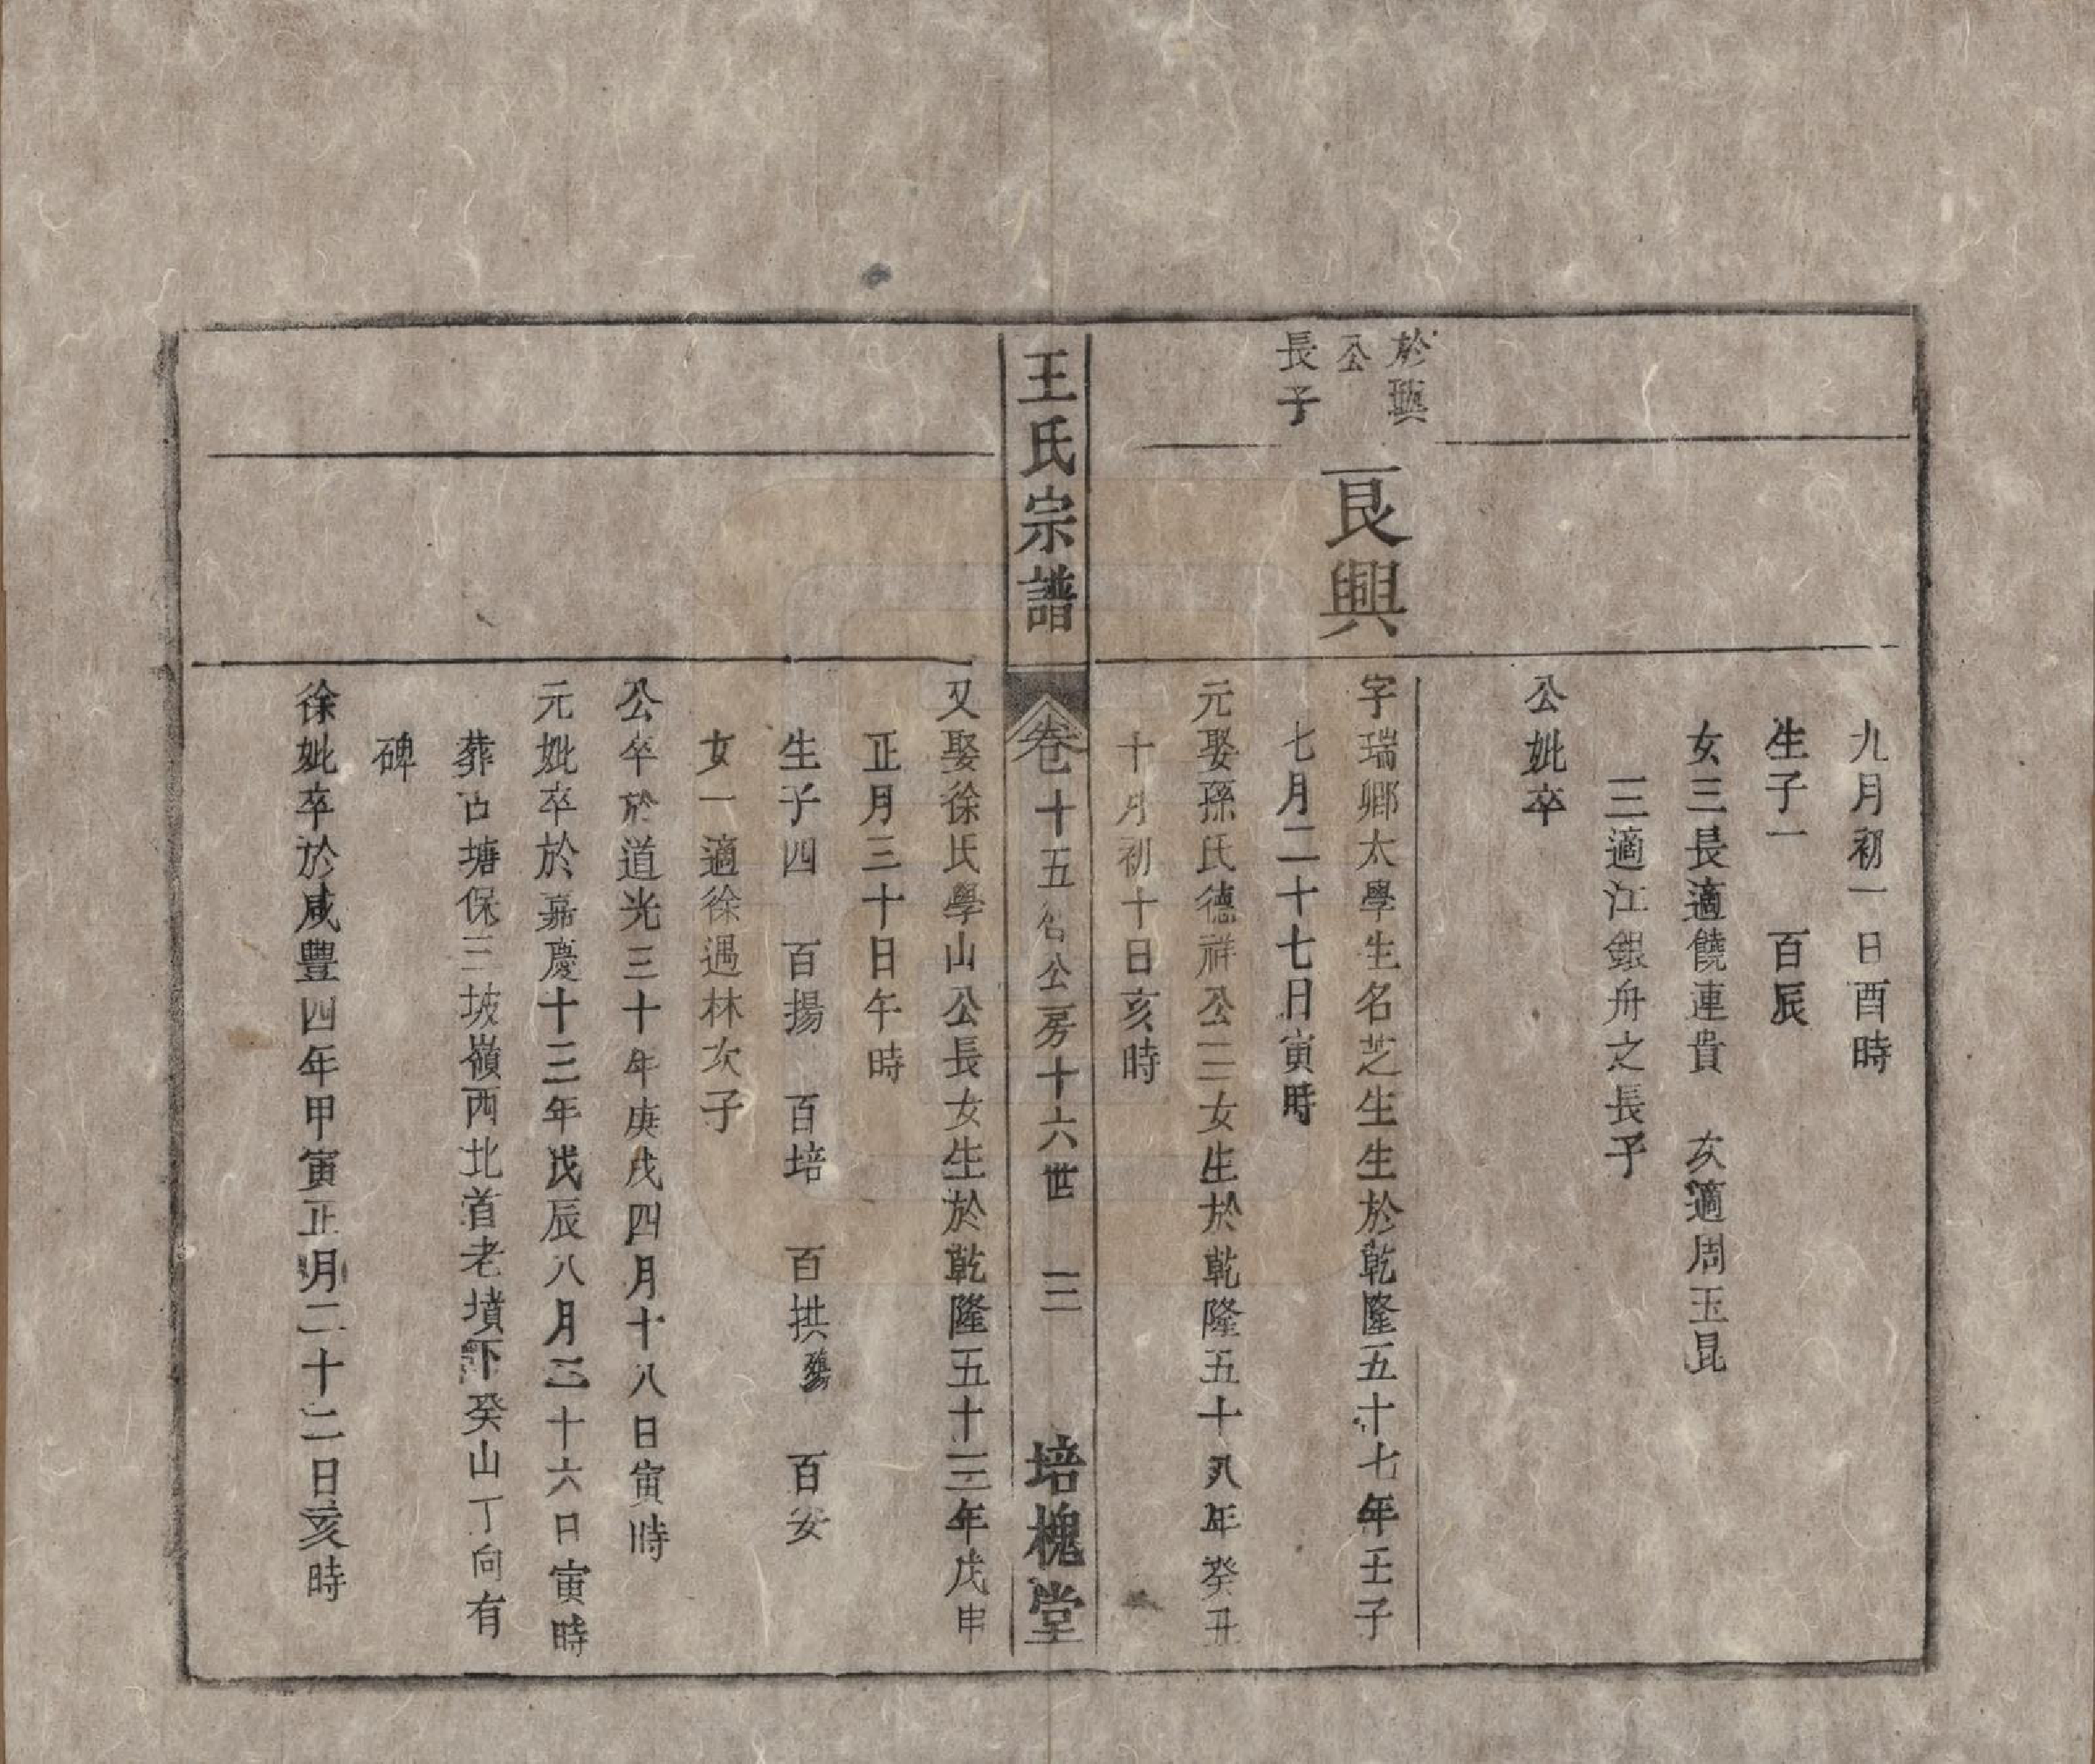 九月初一日酉時
生子一　百辰
女三長適饒連貴　次適周玉昆
三適江銀舟之長子
公妣卒
於璵
公
長子
良興
字瑞鄉太學生名芝生生於乾隆五十七年壬子
七月二十七日寅時
元娶孫氏德祥公三女生於乾隆五十八年癸丑
十月初十日亥時
王氏宗譜
卷十五名公房十六世　三
培槐堂
又娶徐氏學山公長女生於乾隆五十三年戊申
正月三十日午時
生子四　百揚　百培　百拱　百安
女一適徐遇林次子
公卒於道光三十年庚戌四月十八日寅時
元妣卒於嘉慶十三年戊辰八月二十六日寅時
葬古塘保三坡嶺西北首老墳下癸山丁向有
碑
徐妣卒於咸豐四年甲寅正月二十二日亥時